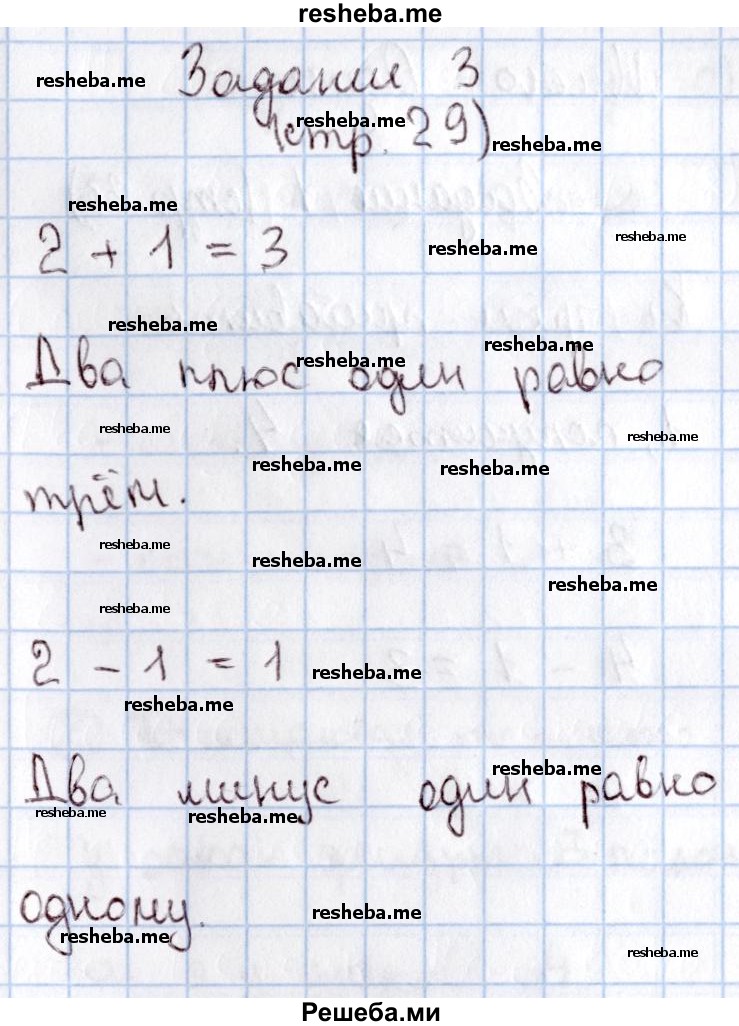 resheba.me
Задание 3
resheba.me
(стр. 29)
resheba.me
resheba.me
resheba.me
2 + 1 = 3
resheba.me
resheba.me
resheba.me
resheba.me
resheba.me
Два плюс один равно
resheba.me
resheba.me
resheba.me
resheba.me
трём.
resheba.me
resheba.me
resheba.me
resheba.me
2 - 1 = 1
resheba.me
resheba.me
resheba.me
Два минус один равно
resheba.me
resheba.me
одному.
resheba.me
resheba.me
resheba.me
Решеба.ми